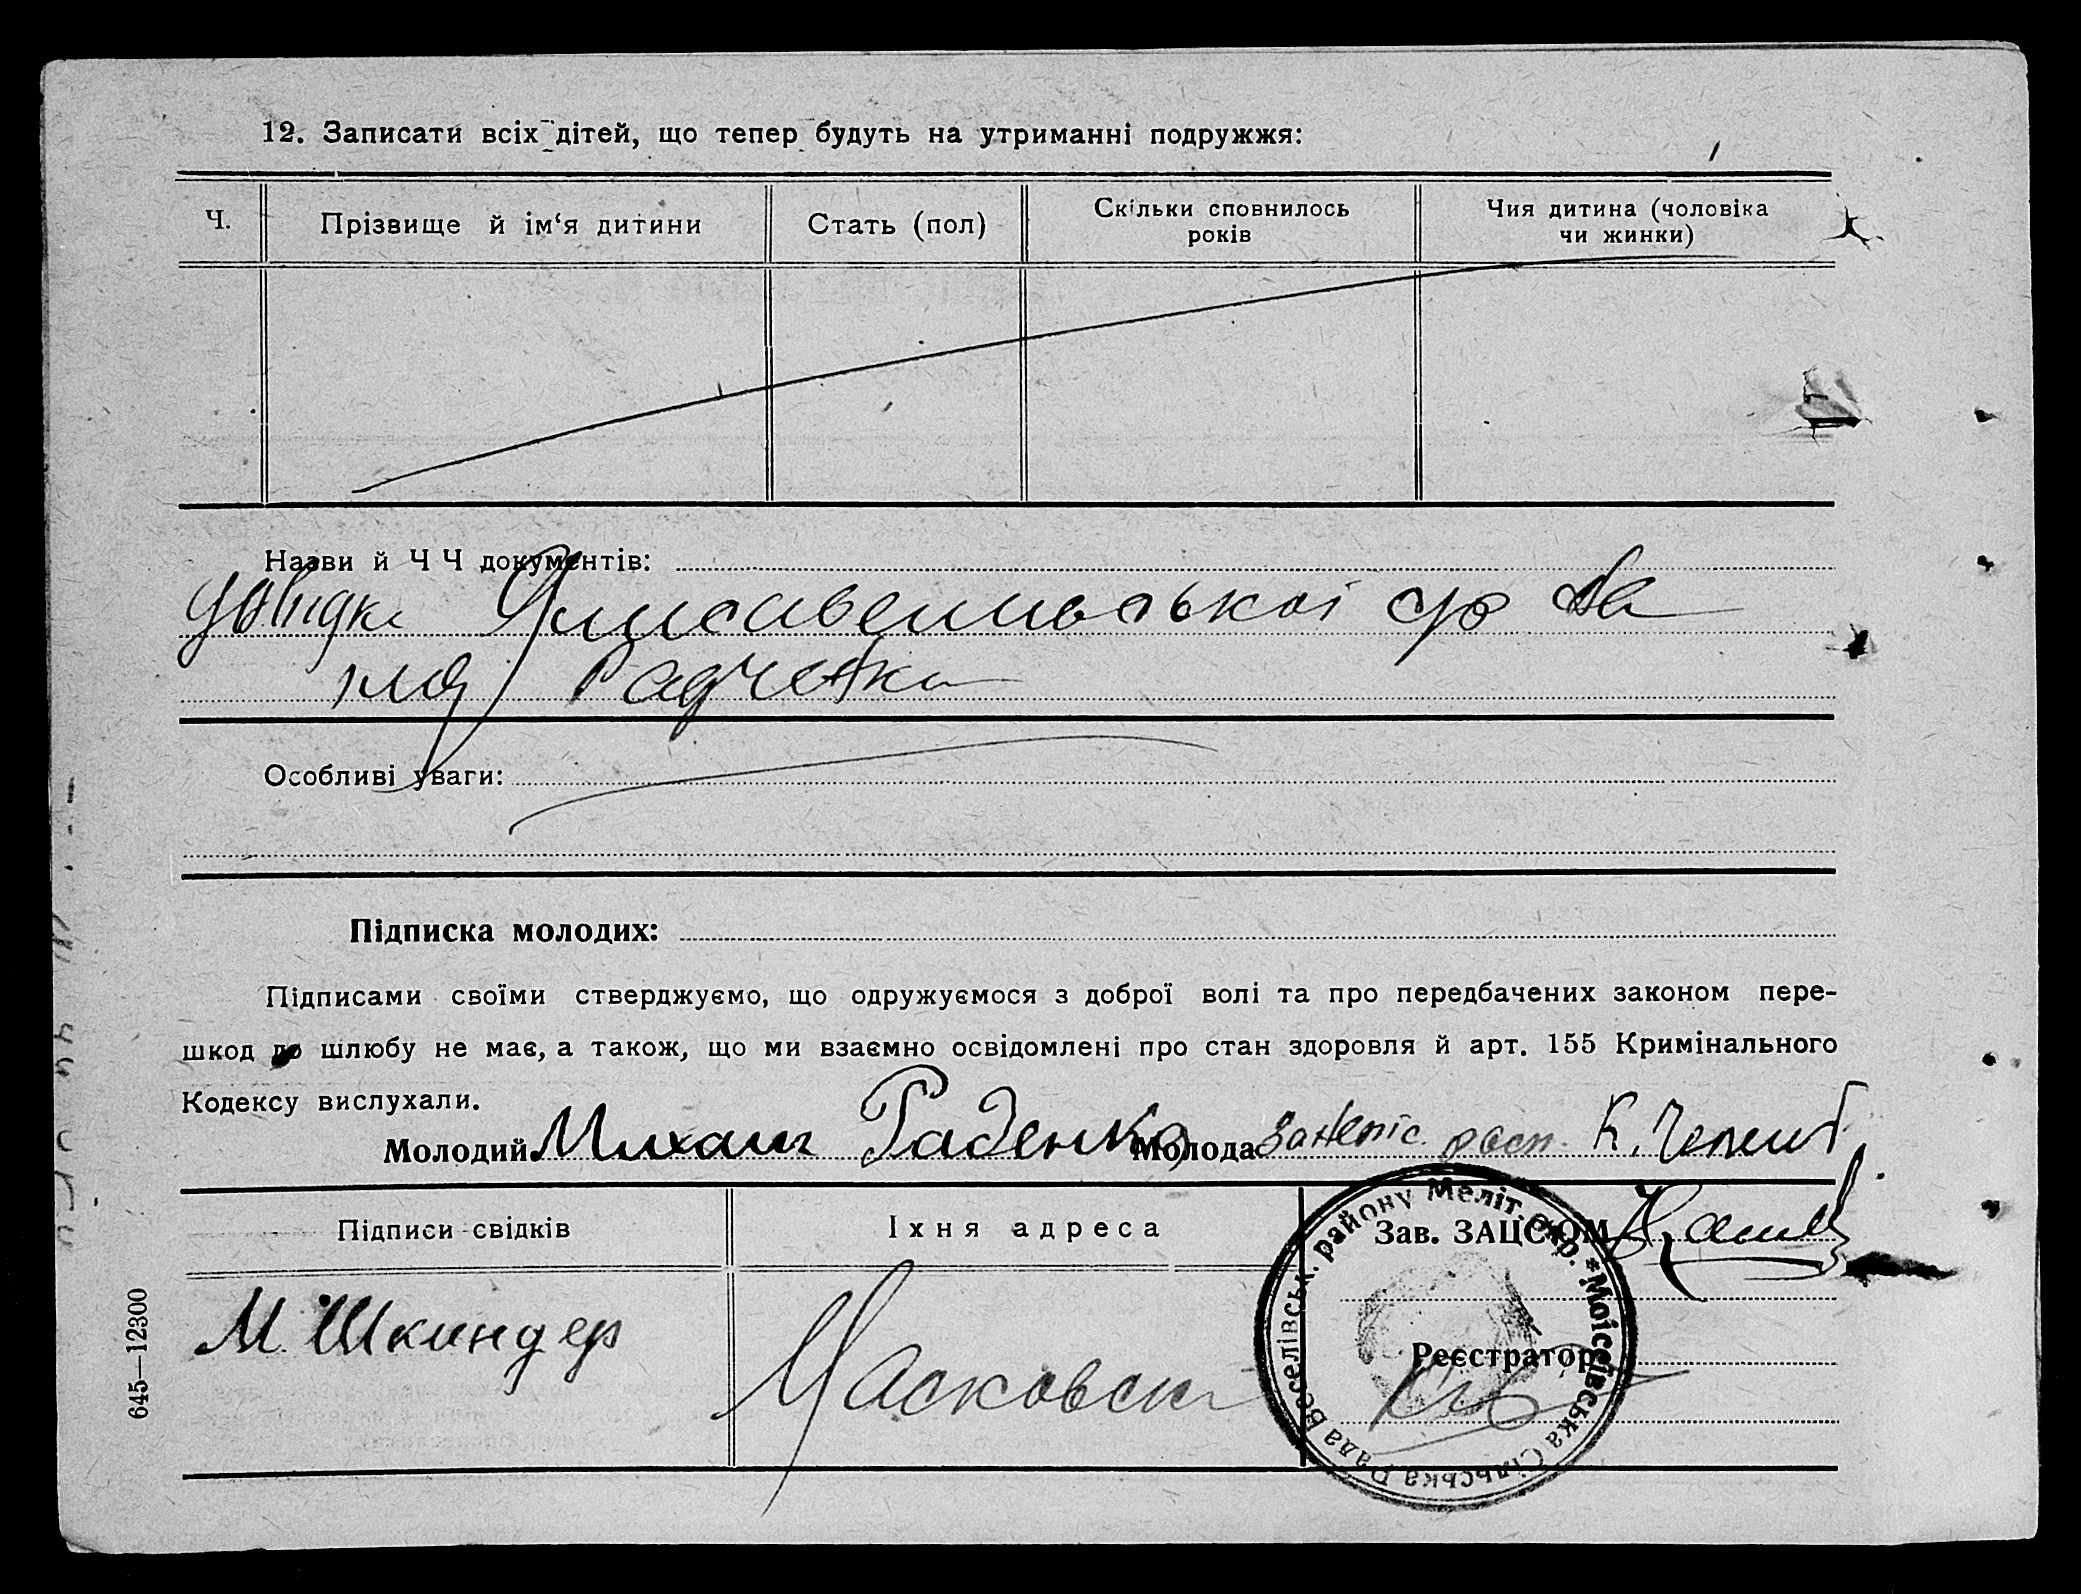 12. Записати всіх дітей, що тепер будуть на утриманні подружжя:
Ч.
Прізвище й ім‘я дитини
Стать (пол)
Скільки сповнилось
років
Чия дитина (чоловіка
чи жинки)
Назви й Ч Ч документів:
Радченка
Особливі уваги:
Підписка молодих:
Підписами своїми стверджуємо, що одружуємося з доброї волі та про передбачених законом пере-
шкод до шлюбу не має, а також, що ми взаємно освідомлені про стан здоровля й арт. 155 Кримінального
Кодексу вислухали.
Молодий Михаил Раденко Молода К.
Підписи свідків
Їхня адреса
Зав. ЗАЦСОМ
М. Шкиндер
Реєстратор
Моісеївська Сільська Рада Веселівськ. району Меліт. Окр. *
645—12300